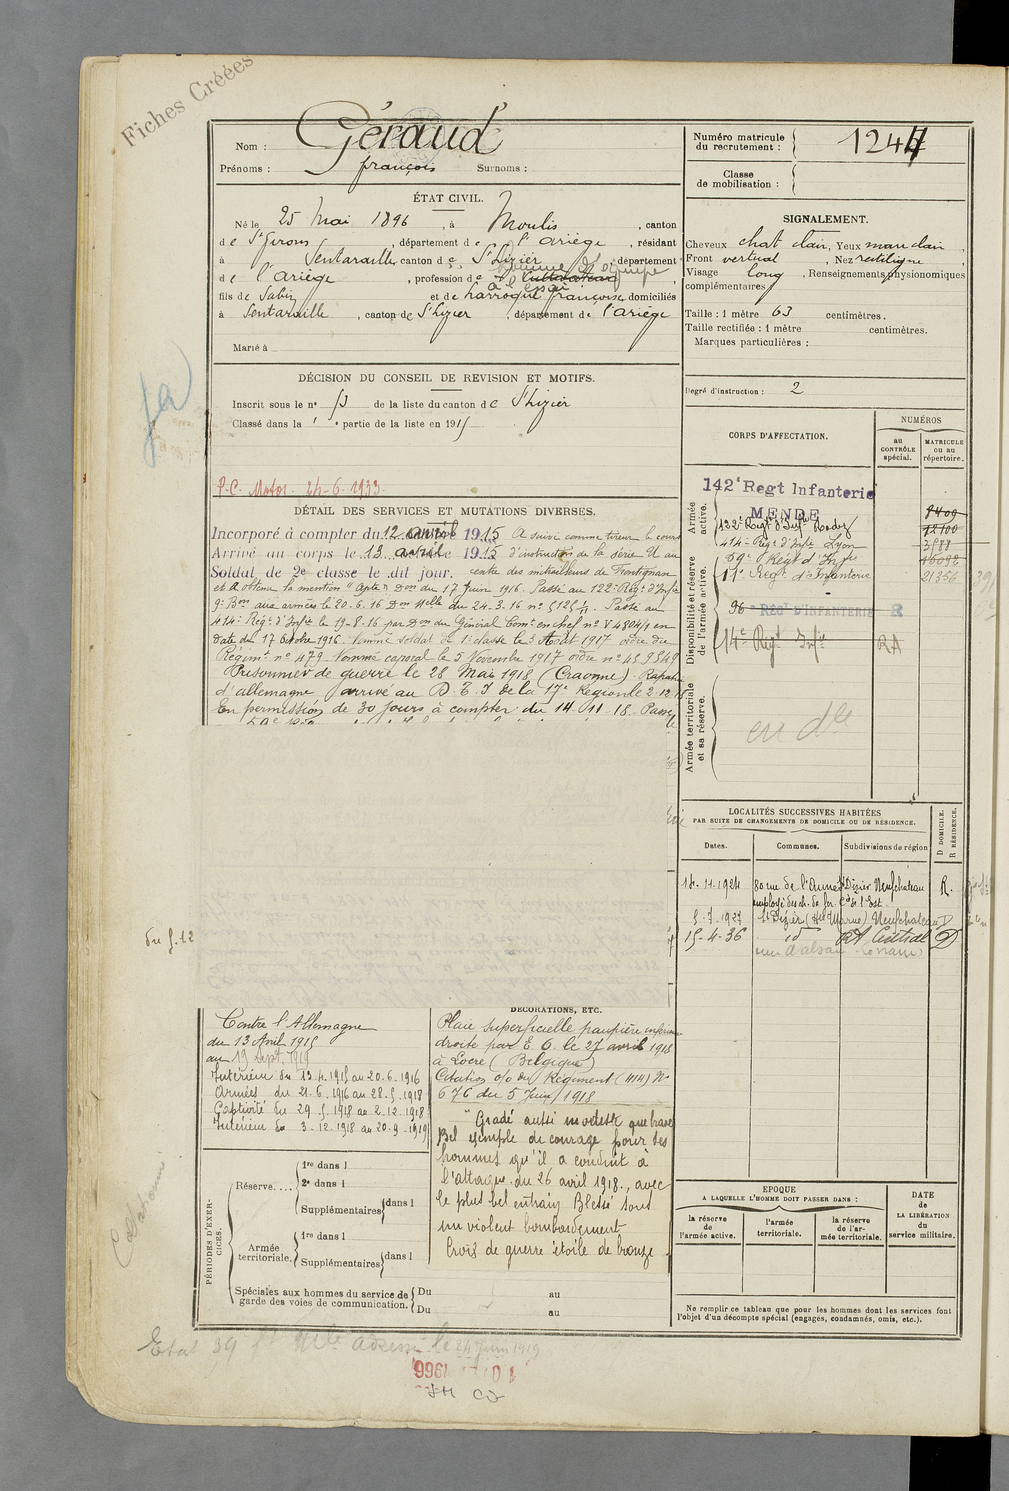 Fiches Créées
Nom : Géraud
Prénoms : françois Surnoms :
Numéro matricule
du recrutement : 1244
Classe
de mobilisation :
ÉTAT CIVIL.
Né le 25 Mai 1896, à Moulis, canton
de St Girons, département de l'ariège, résidant
à Sentaraille, canton de St Lizier, département
de l'ariège, profession de cultivateur
homme d'équipe
à l'essai
fils de Sabin et de Larroque françoise, domiciliés
à Sentaraille, canton de St Lizier, département de l'ariège
Marié à
SIGNALEMENT.
Cheveux chat clair, Yeux mar clair,
Front vertical, Nez rectiligne,
Visage long, Renseignements physionomiques
complémentaires
Taille : 1 mètre 63 centimètres.
Taille rectifiée : 1 mètre centimètres.
Marques particulières :
Degré d'instruction : 2
DÉCISION DU CONSEIL DE REVISION ET MOTIFS.
Inscrit sous le n° 13 de la liste du canton de St Lizier
Classé dans la 1e partie de la liste en 1915
P.C. Motor. 24-6-1933
DÉTAIL DES SERVICES ET MUTATIONS DIVERSES.
Incorporé à compter du 12 avril 1915 A suivi comme tireur le cours
Arrivé au corps le 13 avril 1915 d'instruction de la série U au
Soldat de 2e classe le dit jour. centre des mitrailleurs de Frontignan
et a obtenu la mention "Apte" Don du 17 Juin 1916. Passé au 122e Régt d'Infie
9e Bon aux armées le 20.6.16 Don Melle du 24.3.16 n° 5125 1/11. Passé au
414e Régt d'Infie le 19-8-16 par Don du Général Comt en chef n° V 4804/4 en
date du 17 Octobre 1916. Nommé soldat de 1e classe le 3 Août 1917 ordre du
Régimt n° 479 Nommé caporal le 5 Novembre 1917 ordre n° 45 9549
Prisonnier de guerre le 28 Mai 1918 (Craonne). Rapatrié
d'allemagne arrivé au D.T.I de la 17e Région le 2-12-18
En permission de 30 jours à compter du 14 11 18. Passé
CORPS D'AFFECTATION.
NUMÉROS
au
CONTRÔLE
spécial.
MATRICULE
ou au
répertoire.
Armée
active.
142e Regt Infanterie
MENDE 8409
122e Regt d'Infie Rodez 12100
414e Régt d'Infie Lyon 3588
Disponibilité et réserve
de l'armée active.
59e Régt d'Infie 16092
11e Regt d'Infanterie 21356
96e REGt D'INFANTERIE R
14e Regt Infie RA
Armée territoriale
et sa réserve.
en dle
LOCALITÉS SUCCESSIVES HABITÉES
PAR SUITE DE CHANGEMENTS DE DOMICILE OU DE RÉSIDENCE.
Dates. Communes. Subdivisions de région
D DOMICILE.
R RÉSIDENCE.
14.11.1924 80 rue de l'Annexe St Dizier Neufchateau R.
employé des ch. de fer Cie de l'Est.
5-7-1927 St Dizier (Hte Marne) Neufchateau D
15-4-36 id RA Central D
rue d'alsace Lorraine
du 5.12
Contre l'Allemagne
du 13 Avril 1915
au 19 Sept. 1919
Intérieur du 13.4.1915 au 20.6.1916
Armées du 21.6.1916 au 28.5.1918
Captivité du 29.5.1918 au 2.12.1918
Intérieur du 3.12.1918 au 20.9.1919
DÉCORATIONS, ETC.
Plaie superficielle paupière inférieure
droite par E.O. le 27 avril 1918
à Locre (Belgique)
Citation o/o du Régiment (414) N°
676 du 5 Juin 1918
"Gradé aussi modeste que brave
Bel exemple de courage pour ses
hommes qu'il a conduit à
l'attaque du 26 avril 1918, avec
le plus bel entrain Blessé sous
un violent bombardement
Croix de guerre étoile de bronze
PÉRIODES D'EXERCICES.
Réserve....
1re dans l
2e dans l
Supplémentaires dans l
Armée
territoriale.
1re dans l
Supplémentaires dans l
Spéciales aux hommes du service de
garde des voies de communication.
Du au
Du au
EPOQUE
A LAQUELLE L'HOMME DOIT PASSER DANS :
la réserve
de
l'armée active.
l'armée
territoriale.
la réserve
de l'ar-
mée territoriale.
DATE
de
LA LIBÉRATION
du
service militaire.
Ne remplir ce tableau que pour les hommes dont les services font
l'objet d'un décompte spécial (engagés, condamnés, omis, etc.).
Etat 39 adressé le 24 Juin 1919